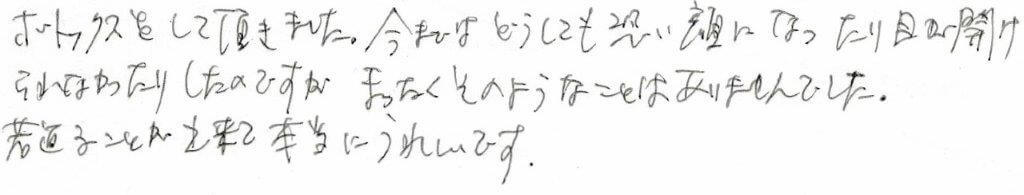 ボトックスをして頂きました。今まではどうしても恐い顔になったり目が開け
られなかったりしたのですが まったくそのようなことはありませんでした。
若返ることが出来て本当にうれしいです.